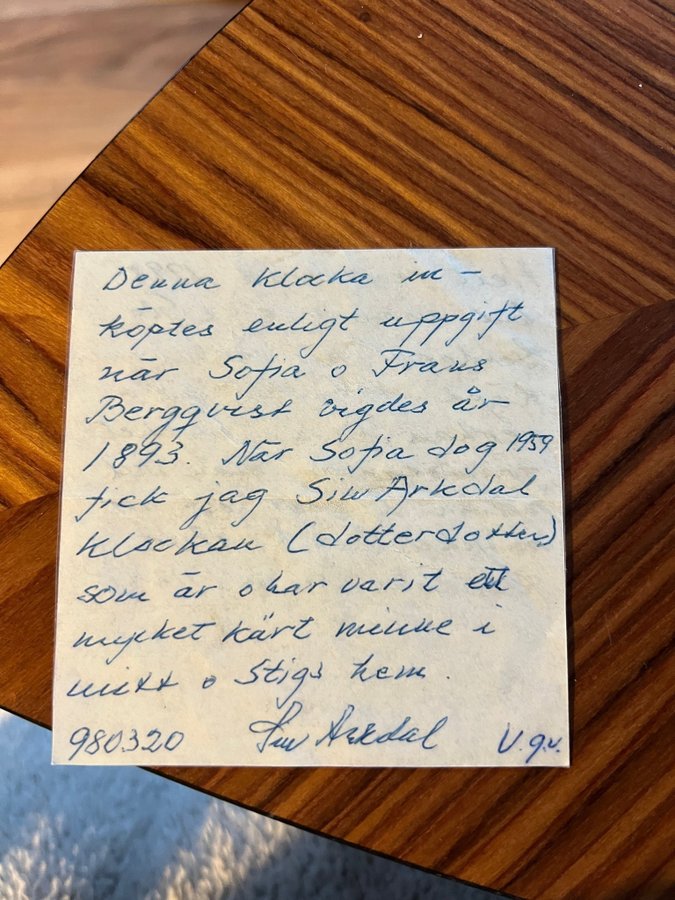 Denna klocka in-
köptes enligt uppgift
när Sofia o Frans
Bergqvist vigdes år
1893. När Sofia dog 1959
fick jag Siw Arkdal
klockan (dotterdotter)
som är o har varit ett
mycket kärt minne i
mitt o Stigs hem.
980320 Siw Arkdal V.g.v.